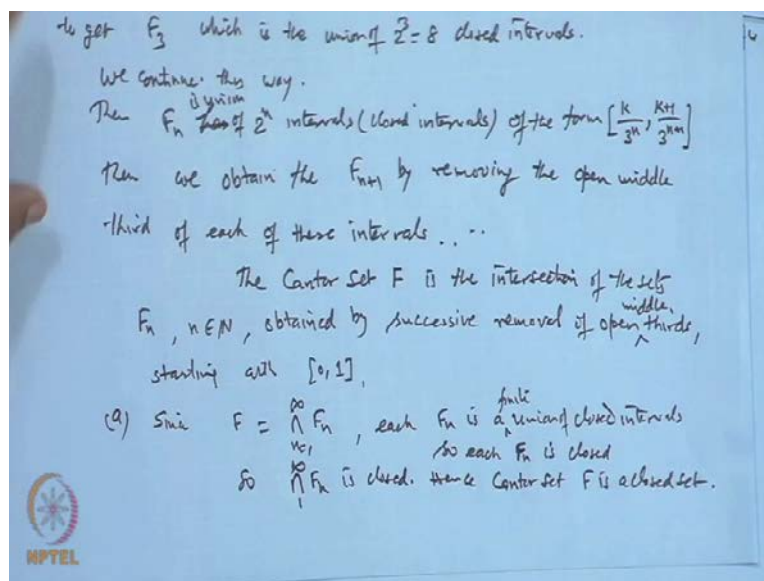 to get F₃ which is the union of 2³ = 8 closed intervals.
We continue this way.
is union
Then Fₙ of 2ⁿ intervals (closed intervals) of the form [k/3ⁿ, k+1/3ⁿ⁺¹]
Then we obtain the Fₙ₊₁ by removing the open middle
third of each of these intervals....
The Cantor Set F is the intersection of the sets
middle
Fₙ, n∈N, obtained by successive removal of open ^ thirds,
starting with [0,1].
finite
(a) Since F = ∞∩n=1 Fₙ, each Fₙ is a ^ union of closed intervals
so each Fₙ is closed
So ∞∩1 Fₙ is closed. Hence Cantor set F is a closed set.
NPTEL